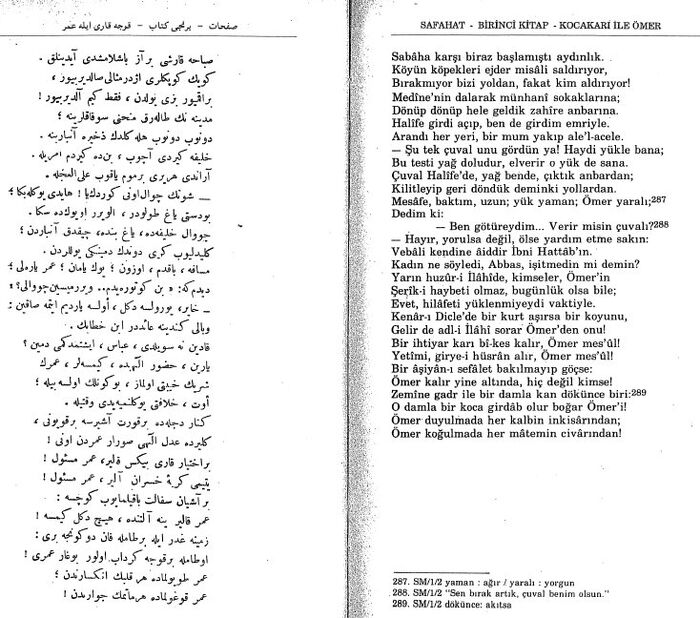 صفحات - برنجی کتاب - قوجه قاری ایله عمر
صباحه قارشی براز باشلامشدی آیدینلق .
کویك کوپکلری اژدرمثالی صالدیرییور ،
براقمیور بزی یولدن ، فقط کیم آلدیرییور !
مدینه نك طاله‌رق منحنی سوقاقلرینه ؛
دونوب دونوب هله کلدك ذخیره آنبارینه .
خلیفه کیردی آچوب ، بن‌ده کیردم امریله .
آراندی هریری برموم یاقوب علی‌العجله .
— شوتك چوال‌اونی کوردك‌یا ! هایدی یوکله‌بکا ؛
بوتستی یاغ طولودر ، الویرر اویوك‌ده سکا .
چووال خلیفه‌ده ، یاغ بنده، چیقدق آنباردن ؛
کلیدلیوب کری دوندك دمینکی یوللردن .
مسافه ، باقدم ، اوزون ؛ یوك یامان ؛ عمر یاره‌لی ؛
دیدم‌که: « بن کوتوره‌یدم.. ویررمیسین‌چووالی؟ »
– خایر، یورولسه دکل ، أولسه یاردیم ایتمه صاقین :
وبالی کندینه عائددر ابن خطابك .
قادین نه سویلدی ، عباس ، ایشتمدکمی دمین ؟
یارین ، حضور الهیده ، کیمسه‌لر ، عمرك
شریك خیبتی اولماز ، بوکونلك اولسه بیله ؛
أوت ، خلافتی یوکلنمیه‌یدی وقتیله .
کنار دجله‌ده برقورت آشیرسه برقویونی ،
کلیرده عدل الهی صورار عمردن اونی !
براختیار قاری بیکس قالیر، عمر مسئول !
یتیمی کریۀ خسران آلیر، عمر مسئول !
برآشیان سفالت باقیلمایوب کوچسه :
عمر قالیر ینه آلتنده ، هیچ دکل کیمسه !
زمینه غدر ایله برطامله قان دوکونجه بری :
اوطامله برقوجه کرداب اولور بوغار عمری !
عمر طویولماده هرقلبك انکسارندن ؛
عمر قوغولماده هرماتمك جوارندن !
SAFAHAT - BİRİNCİ KİTAP - KOCAKARI İLE ÖMER
Sabâha karşı biraz başlamıştı aydınlık.
Köyün köpekleri ejder misâli saldırıyor,
Bırakmıyor bizi yoldan, fakat kim aldırıyor!
Medîne'nin dalarak münhanî sokaklarına;
Dönüp dönüp hele geldik zahîre anbarına.
Halîfe girdi açıp, ben de girdim emriyle.
Arandı her yeri, bir mum yakıp ale'l-acele.
— Şu tek çuval unu gördün ya! Haydi yükle bana;
Bu testi yağ doludur, elverir o yük de sana.
Çuval Halîfe'de, yağ bende, çıktık anbardan;
Kilitleyip geri döndük deminki yollardan.
Mesâfe, baktım, uzun; yük yaman; Ömer yaralı;287
Dedim ki:
— Ben götüreydim... Verir misin çuvalı?288
— Hayır, yorulsa değil, ölse yardım etme sakın:
Vebâli kendine âiddir İbni Hattâb'ın.
Kadın ne söyledi, Abbas, işitmedin mi demin?
Yarın huzûr-i İlâhîde, kimseler, Ömer'in
Şerîk-i haybeti olmaz, bugünlük olsa bile;
Evet, hilâfeti yüklenmiyeydi vaktiyle.
Kenâr-ı Dicle'de bir kurt aşırsa bir koyunu,
Gelir de adl-i İlâhî sorar Ömer'den onu!
Bir ihtiyar karı bî-kes kalır, Ömer mes'ûl!
Yetîmi, girye-i hüsrân alır, Ömer mes'ûl!
Bir âşiyân-ı sefâlet bakılmayıp göçse:
Ömer kalır yine altında, hiç değil kimse!
Zemîne gadr ile bir damla kan dökünce biri:289
O damla bir koca girdâb olur boğar Ömer'i!
Ömer duyulmada her kalbin inkisârından;
Ömer koğulmada her mâtemin civârından!
287. SM/1/2 yaman : ağır / yaralı : yorgun
288. SM/1/2 "Sen bırak artık, çuval benim olsun."
289. SM/1/2 dökünce: akıtsa